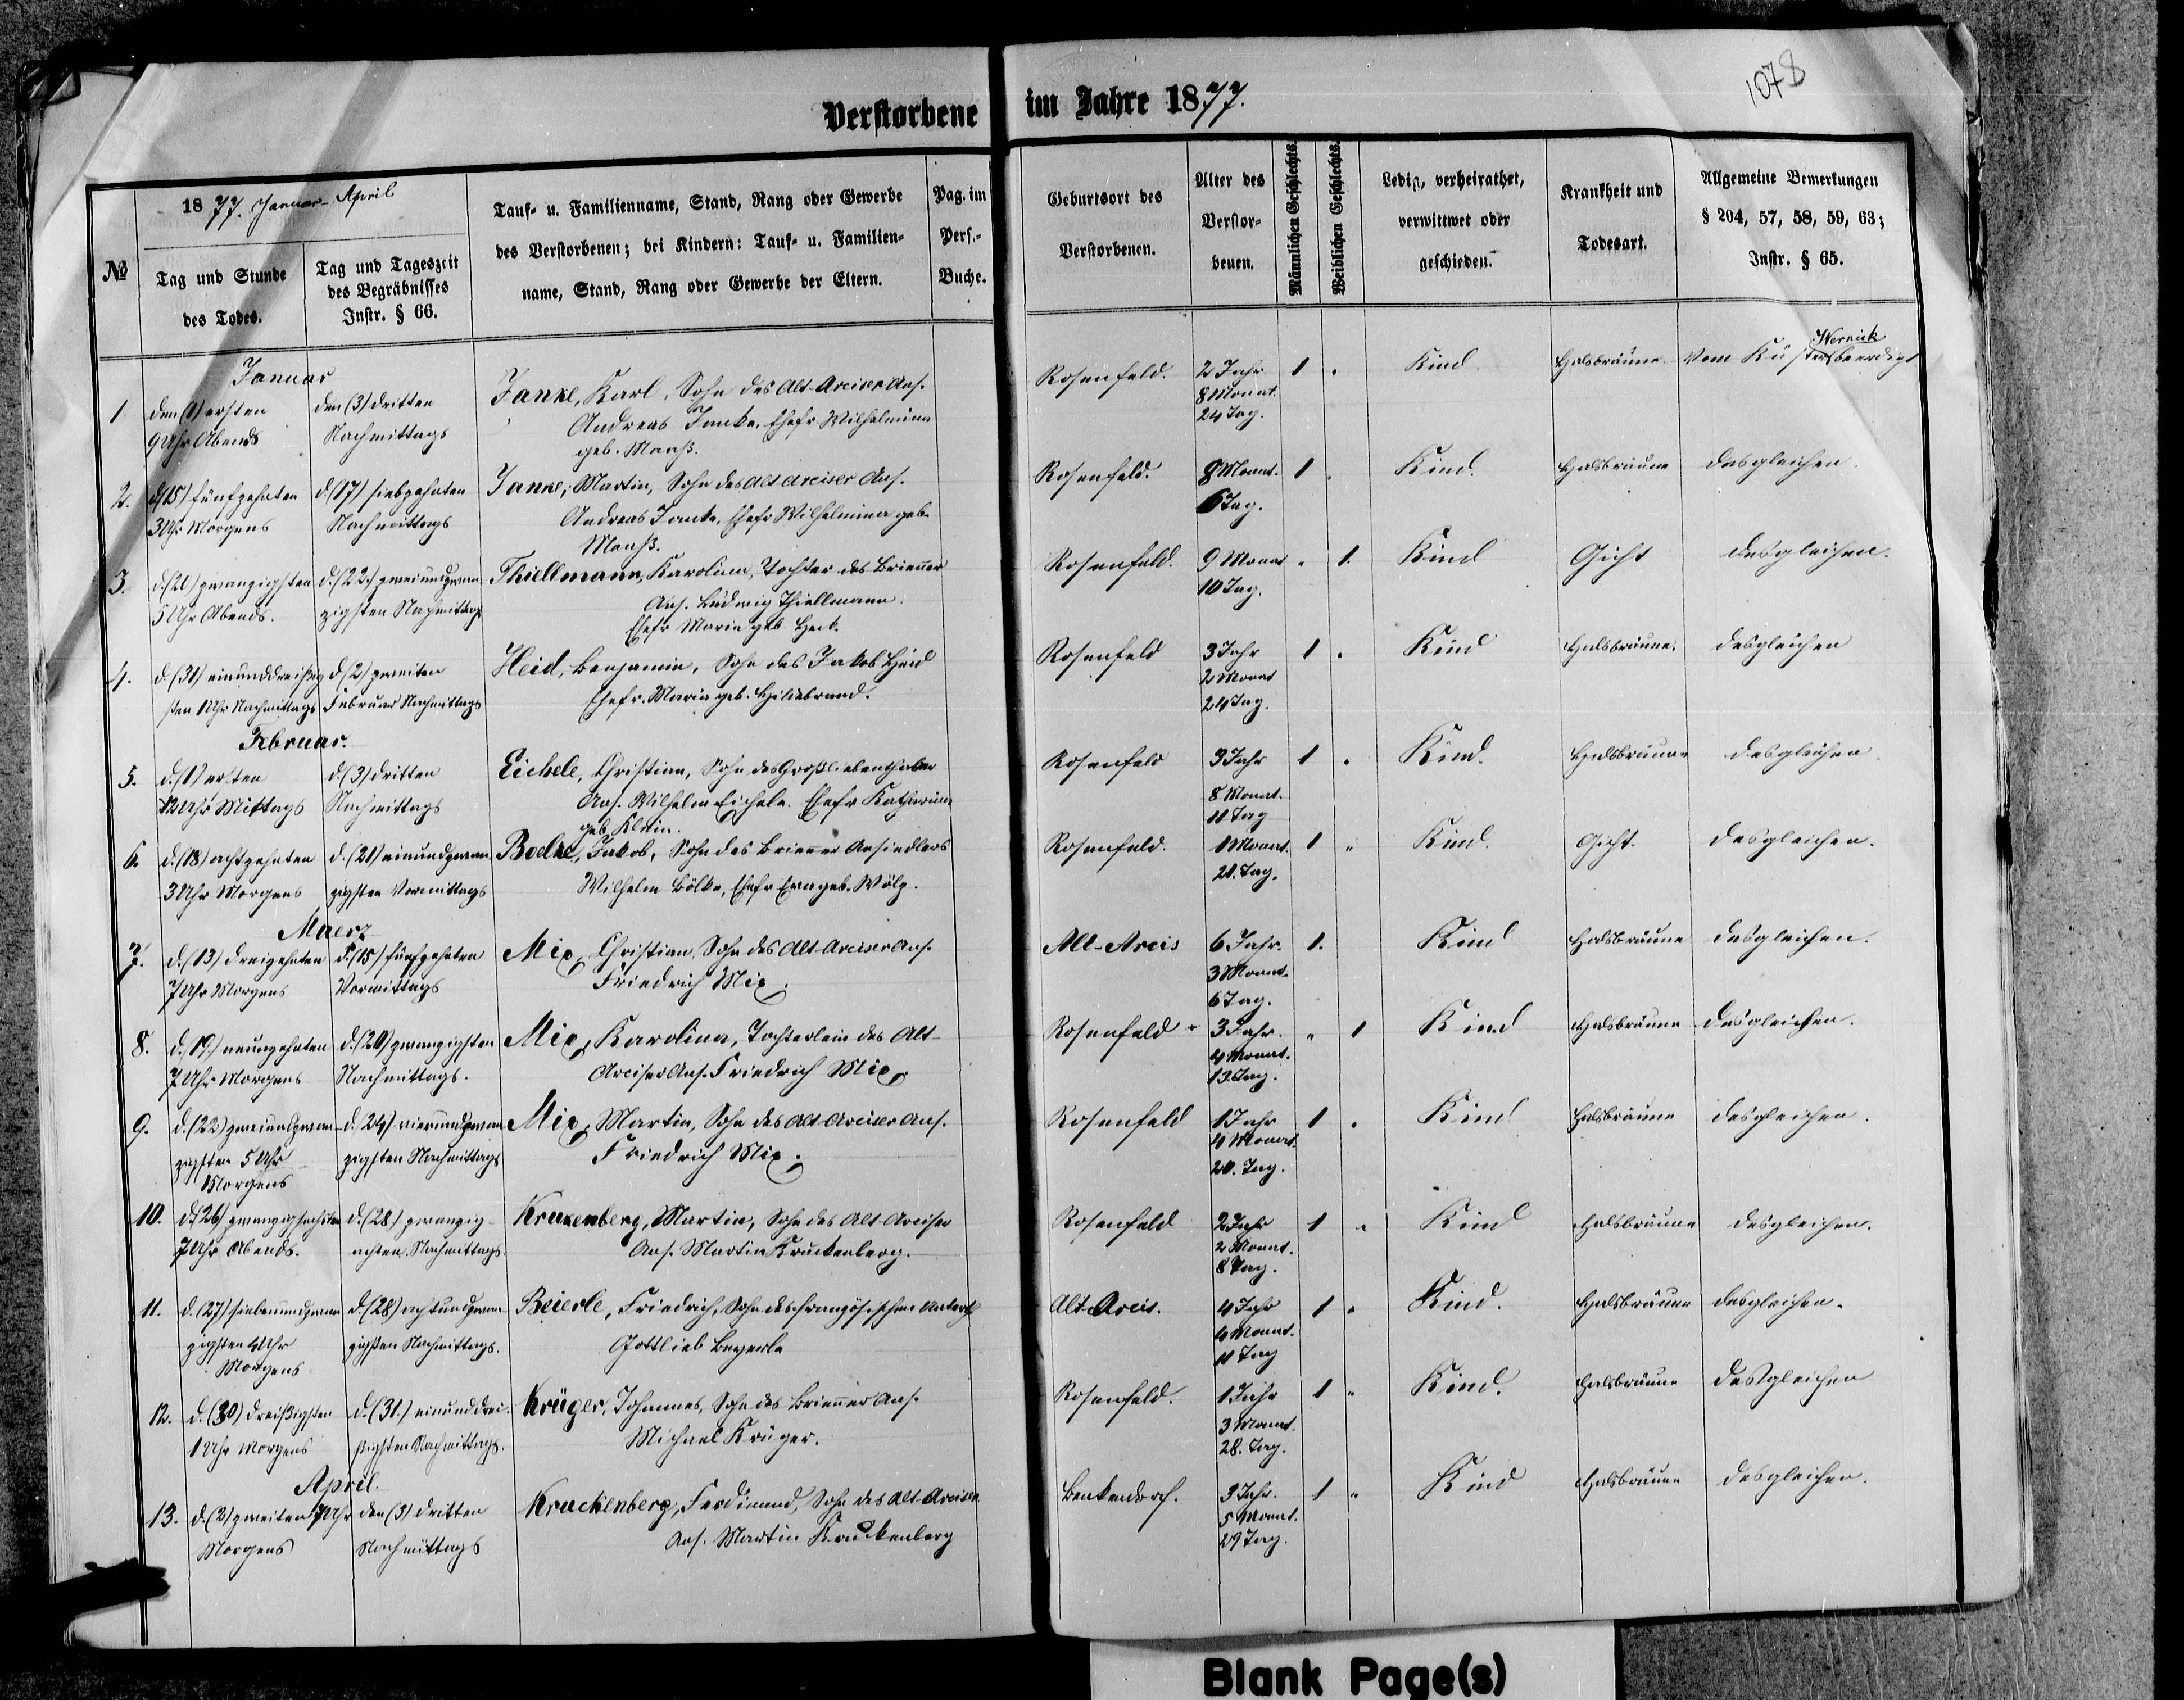 Verstorbene im Jahre 1877.
1078
№
1877. Januar-April
Tag und Stunde
des Todes.
Tag und Tageszeit
des Begräbnisses
Instr. § 66.
Tauf- u. Familienname, Stand, Rang oder Gewerbe
des Verstorbenen; bei Kindern: Tauf- u. Familien-
name, Stand, Rang oder Gewerbe der Eltern.
Pag. im
Pers.-
Buche.
Geburtsort des
Verstorbenen.
Alter des
Verstor-
benen.
Männlichen Geschlechts.
Weiblichen Geschlechts.
Ledig, verheirathet,
verwittwet oder
geschieden.
Krankheit und
Todesart.
Allgemeine Bemerkungen
§ 204, 57, 58, 59, 63;
Instr. § 65.
Januar
1 den (1) ersten
9 Uhr Abends
den (3) dritten
Nachmittags
Janke, Karl, Sohn des Alt-Arciser Ans.
Andreas Janke, Ehefr Wilhelmina
geb. Manß.
Rosenfeld.
2 Jahr
8 Monat.
24 Tag.
1 .
Kind
Halsbräune
Wernick
Vom Küster beerdigt
2. d. (15) fünfzehnten
3 Uhr Morgens
d. (17) siebzehnten
Nachmittags
Janke, Martin, Sohn des Alt Arciser Ans.
Andreas Janke, Ehefr Wilhelmina geb.
Manß.
Rosenfeld.
8 Monat.
6 Tag.
1 .
Kind.
Halsbräune
desgleichen.
3. d. (20) zwanzigsten
5 Uhr Abends.
d. (22.) zweiundzwan-
zigsten Nachmittags
Thiellmann, Karolina, Tochter des Brienner
Ans. Ludwig Thiellmann.
Ehefr Maria geb. Heck.
Rosenfeld.
9 Monat
10 Tag.
. 1.
Kind
Gicht
desgleichen.
4. d. (31) einunddreißig
sten 1 Uhr Nachmittags
d. (2) zweiten
Februar Nachmittags
Heid, Benjamin, Sohn des Jakob Heid
Ehefr. Maria geb. Hildebrand.
Rosenfeld
3 Jahr
2 Monat
24 Tag.
1 .
Kind
Halsbräune.
desgleichen
Februar.
5. d. (1) ersten
12 Uhr Mittags
d. (3) dritten
Nachmittags
Eichele, Christian, Sohn des Großliebenthaler
Ans. Wilhelm Eichele. Ehefr Katharina
geb. Klein.
Rosenfeld
3 Jahr
8 Monat.
11 Tag
1 .
Kind.
Halsbräune
desgleichen.
6. d. (18) achtzehnten
3 Uhr Morgens
d. (21) einundzwan-
zigsten Vormittags
Boelke, Jakob, Sohn des Brienner Ansiedlers
Wilhelm Bölke, Ehefr Eva geb. Wölz.
Rosenfeld.
1 Monat.
21. Tag.
1 "
Kind.
Gicht.
desgleichen.
Maerz
7. d. (13) dreizehnten
7 Uhr Morgens
d. (15) fünfzehnten
Vormittags
Mix, Christian, Sohn des Alt-Arciser Ans.
Friedrich Mix.
Alt-Arcis
6 Jahr.
3 Monat.
6 Tag.
1.
Kind
Halsbräune
desgleichen.
8. d. (19.) neunzehnten
7 Uhr Morgens
d. (20) zwanzigsten
Nachmittags.
Mix, Karolina, Töchterlein des Alt-
Arciser Ans. Friedrich Mix.
Rosenfeld
3 Jahr.
4 Monat.
13. Tag.
" 1
Kind
Halsbräune
desgleichen.
9. d. (22) zweiundzwan-
zigsten 5 Uhr
Morgens
d. 24) vierundzwan-
zigsten Nachmittags
Mix, Martin, Sohn des Alt Arciser Ans.
Friedrich Mix.
Rosenfeld
1 Jahr
4 Monat.
20. Tag.
1 .
Kind
Halsbräune
desgleichen.
10. d. (26) zwanzigsechsten
7 Uhr Abends.
d. (28) zwanzig-
achten Nachmittags.
Krukenberg, Martin, Sohn des Alt Arciser
Ans. Martin Kruckenberg.
Rosenfeld
2 Jahr
2 Monat.
8 Tag.
1 "
Kind
Halsbräune
desgleichen.
11. d. (27) siebenundzwan-
zigsten 4 Uhr
Morgens
d. (28) achtundzwan-
zigsten Nachmittags.
Beierle, Friedrich, Sohn des französischen
Gottlieb Beyerle
Alt Arcis.
4 Jahr
4 Monat.
11 Tag
1 "
Kind.
Halsbräune
desgleichen.
12. d. (30) dreißigsten
1 Uhr Morgens
d. (31.) einunddrei-
ßigsten Nachmittags.
Krüger, Johannes, Sohn des Brienner Ans.
Michael Krüger.
Rosenfeld.
1 Jahr
3 Monat.
28. Tag.
1 "
Kind.
Halsbräune
desgleichen
April.
13. d. (2) zweiten 7 Uhr
Morgens
den (3) dritten
Nachmittags
Kruckenberg, Ferdinand, Sohn des Alt-Arciser
Ans. Martin Kruckenberg
Benkendorf.
3 Jahr.
5 Monat.
29 Tag.
1 "
Kind
Halsbräune
desgleichen.
Blank Page(s)